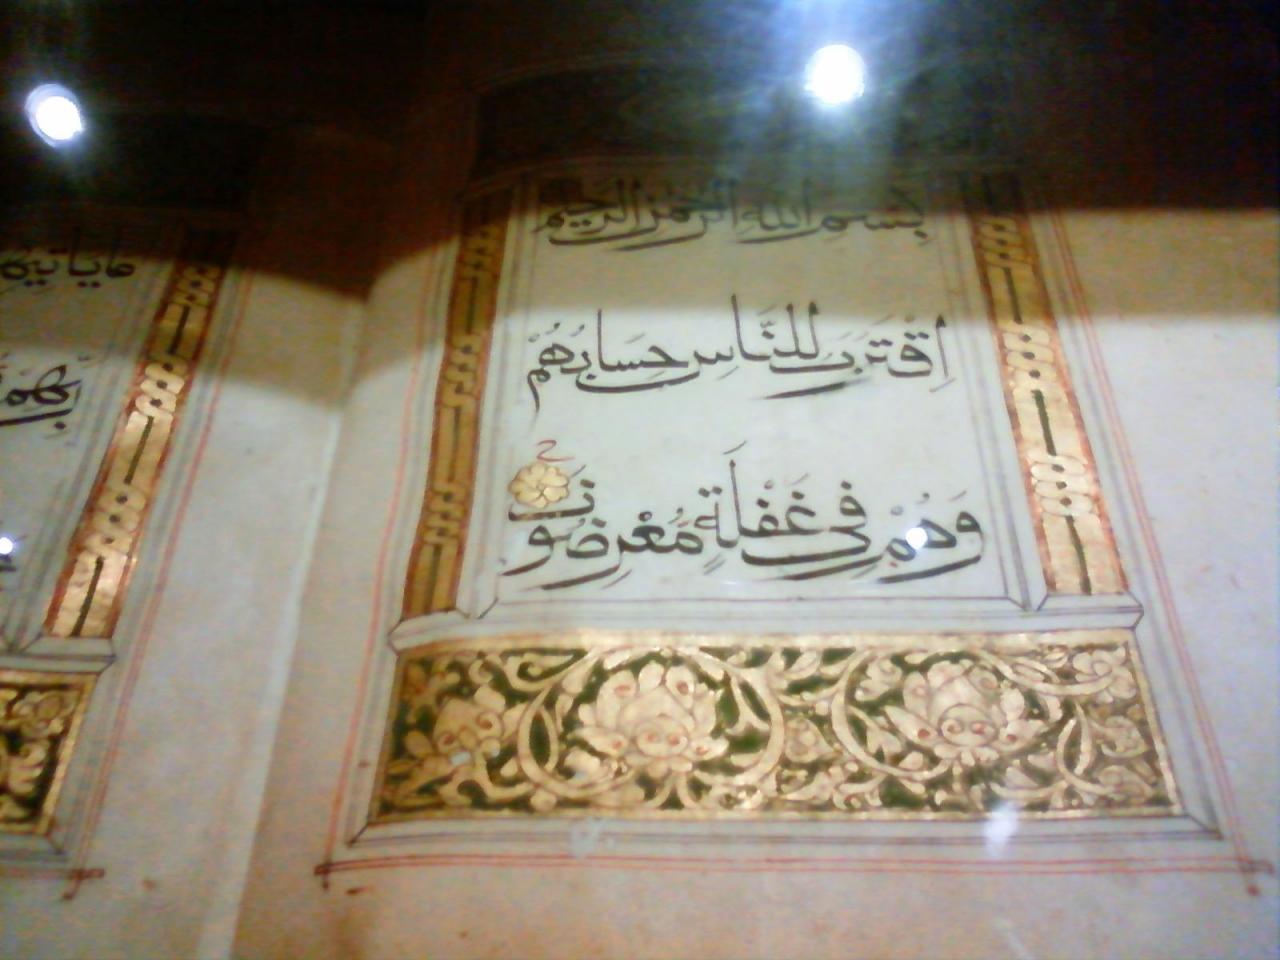 بسم الله الرحمن الرحيم
اِقْتَرَبَ لِلنَّاسِ حِسَابُهُمْ
وَهُمْ فِي غَفْلَةٍ مُّعْرِضُونَ
مايأتيهم